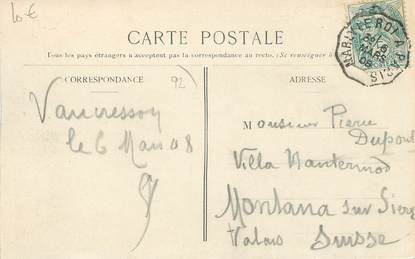 10€
CARTE POSTALE
Tous les pays étrangers n'acceptent pas la correspondance au recto. (Se renseigner à
CORRESPONDANCE
92)
ADRESSE
Vaucresson
le 6 Mars 08
Monsieur Pierre
Dupont
Villa Nantermod
Montana sur Sierre
Valais Suisse
MARLY LE ROI A PARIS
MARS
08